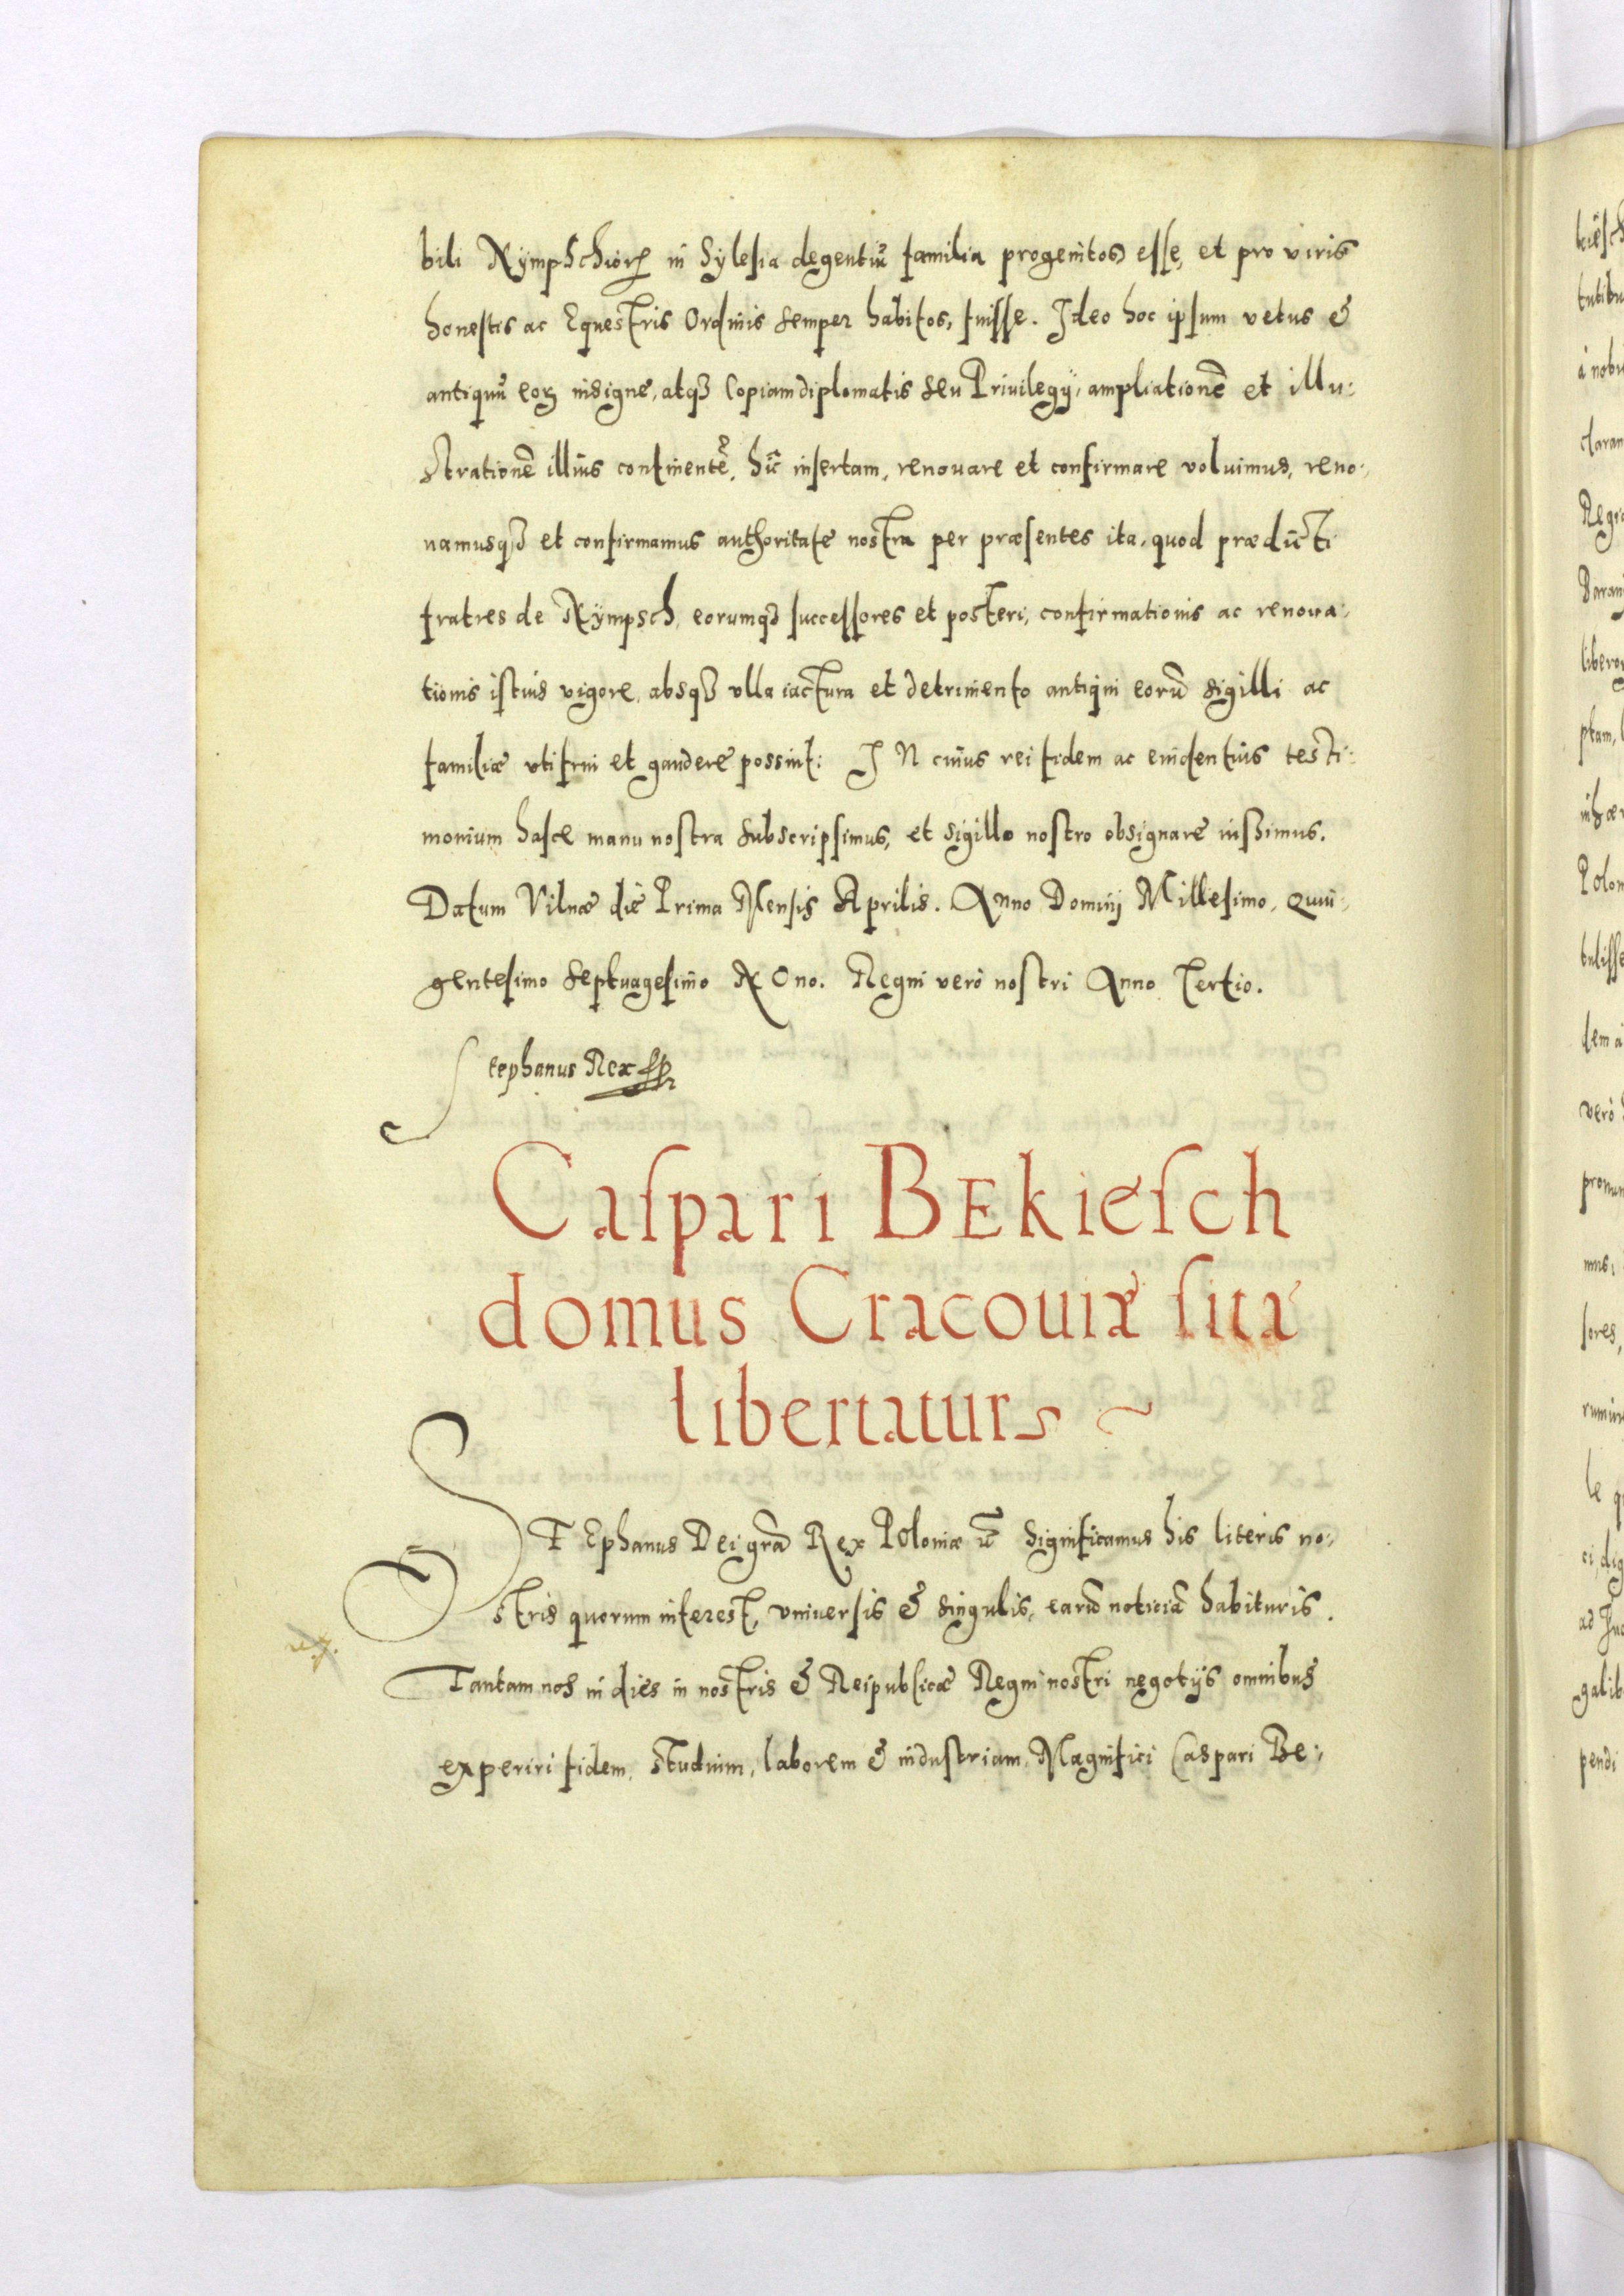 bili Nÿmpschioꝝ in Sylesia degentiũ familia progenitos esse, et pro viris
honestis ac Equestris Ordinis semper habitos, fuisse. Ideo hoc ipsum vetus &
antiquũ eoꝝ insigne, atqꝫ Copiam diplomatis seu Priuilegÿ, ampliationẽ et illu:
strationẽ illius continentẽ, hĩc insertam, renouare et confirmare voluimus, reno:
uamusqꝫ et confirmamus authoritate nostra per præsentes ita, quod prædicti
fratres de Nÿmpsch, eorumqꝫ successores et posteri, confirmationis ac renoua:
tionis istius vigore, absqꝫ vlla iactura et detrimento antiqui eorũ sigilli ac
familiæ vti frui et gaudere possint: IN cuius rei fidem ac euidentius testi:
monium hasce manu nostra subscripsimus, et sigillo nostro obsignare iussimus.
Datum Vilnæ die Prima Mensis Aprilis. Anno Dominj Millesimo, Quin:
gentesimo septuagesimo NOno. Regni verò nostri Anno Tertio.
Stephanus Rex
Caspari BEkiesch
domus Cracouiæ sitæ
libertatur
STEphanus Dei grã Rex Poloniæ Significamus his literis no:
stris quorum interest, vniuersis & singulis, earũ noticiã habituris.
Tantam nos in dies in nostris & Reipublicæ Regni nostri negotijs omnibus
experiri fidem, studium, laborem & industriam, Magnifici Caspari Be: